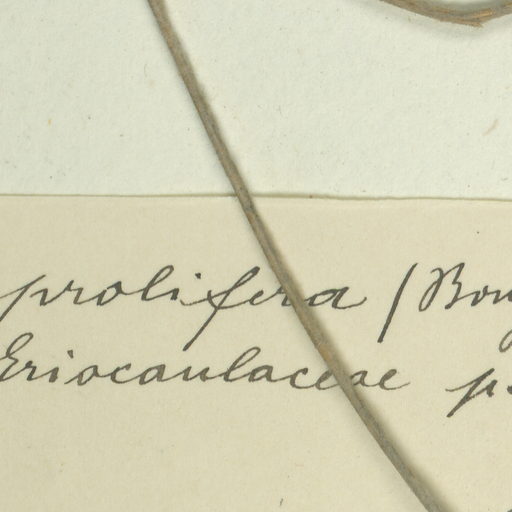 prolifera (Bong
Eriocaulaceae p.